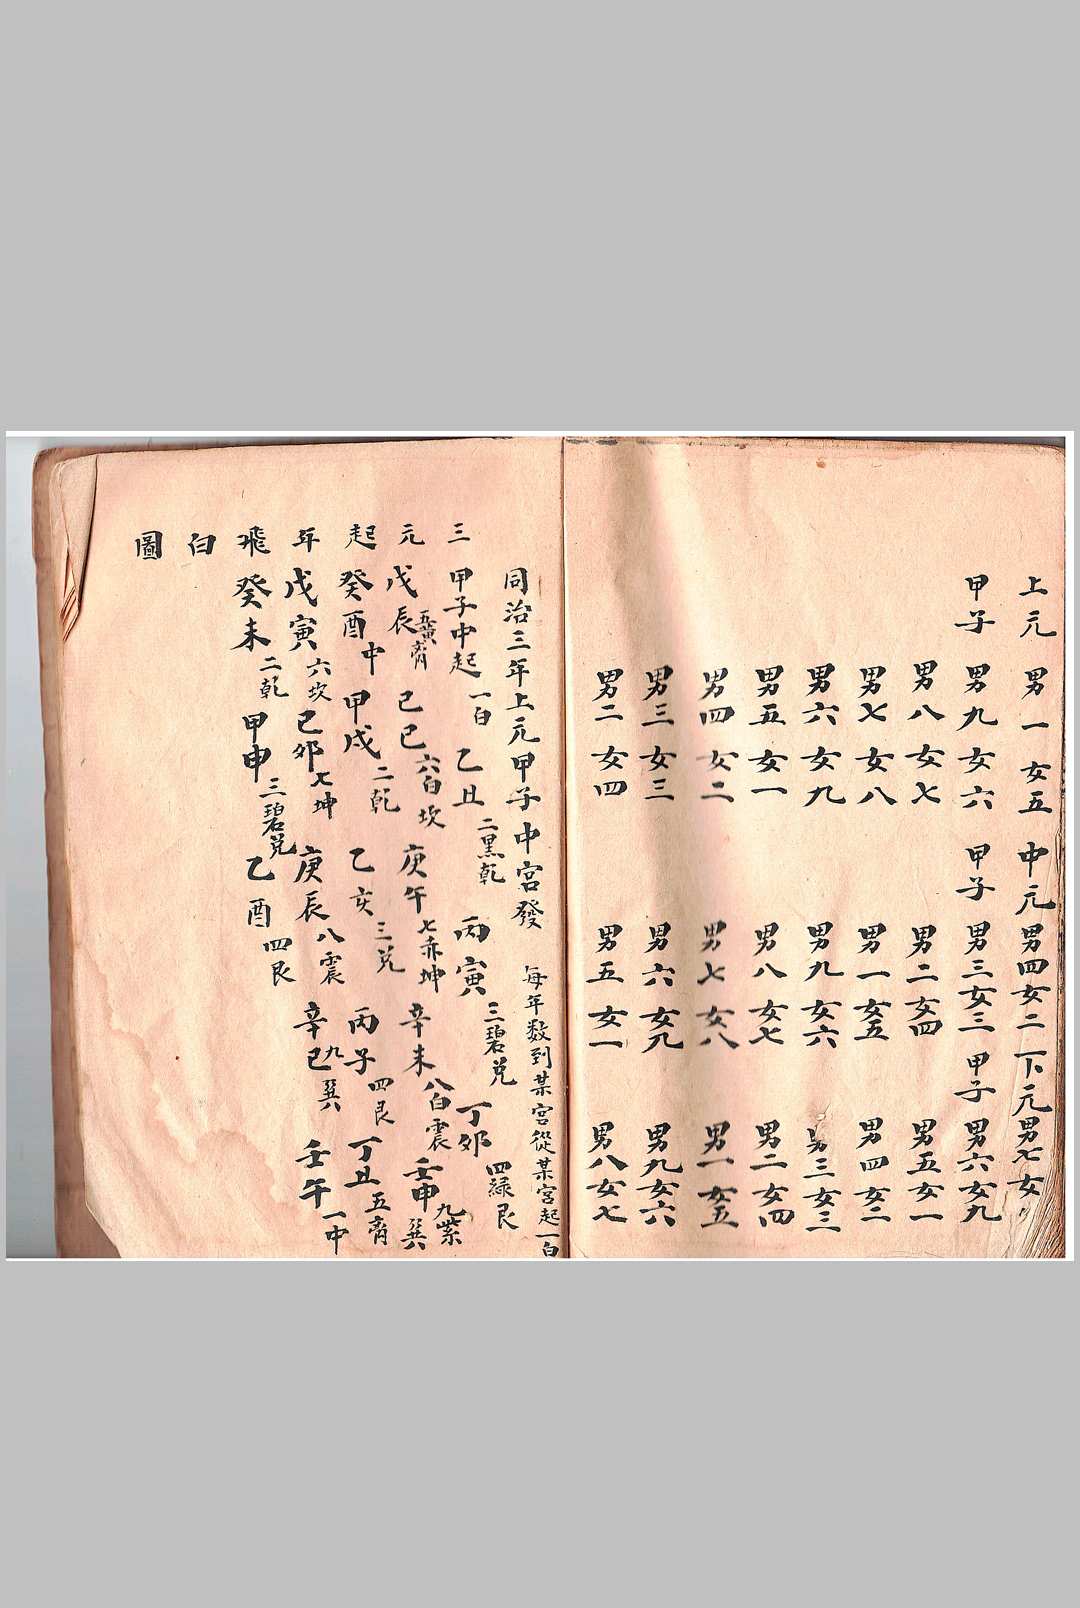 上元 男一女五 中元 男四女二 下元 男七女
甲子 男九女六 甲子 男三女三 甲子 男六女九
男八女七 男二女四 男五女一
男七女八 男一女五 男四女二
男六女九 男九女六 男三女三
男五女一 男八女七 男二女四
男四女二 男七女八 男一女五
男三女三 男六女九 男九女六
男二女四 男五女一 男八女七
同治三年上元甲子中宮發 每年数到某宮從某宮起一白
三元起年飛白圖
甲子中起一白 乙丑二黑乾 丙寅三碧兑 丁卯四緑艮
戊辰五黄离 己巳六白坎 庚午七赤坤 辛未八白震 壬申九紫巽
癸酉中 甲戌二乾 乙亥三兑 丙子四艮 丁丑五离
戊寅六坎 己卯七坤 庚辰八震 辛巳九巽 壬午一中
癸未二乾 甲申三碧兑 乙酉四艮